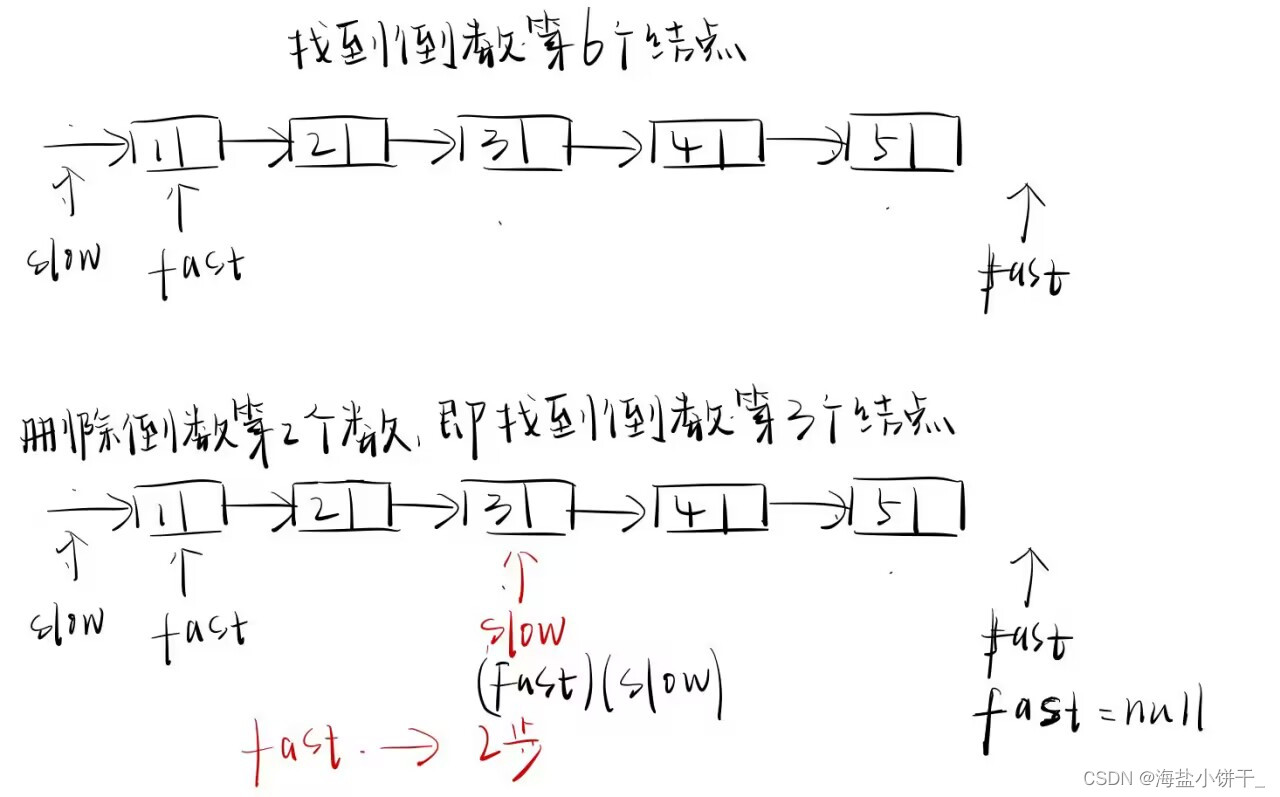 找到倒数第6个结点
1 2 3 4 5
slow fast fast
删除倒数第2个数,即找到倒数第3个结点
1 2 3 4 5
slow fast slow fast
(Fast)(slow)
fast=null
fast → 2步
CSDN @海盐小饼干_